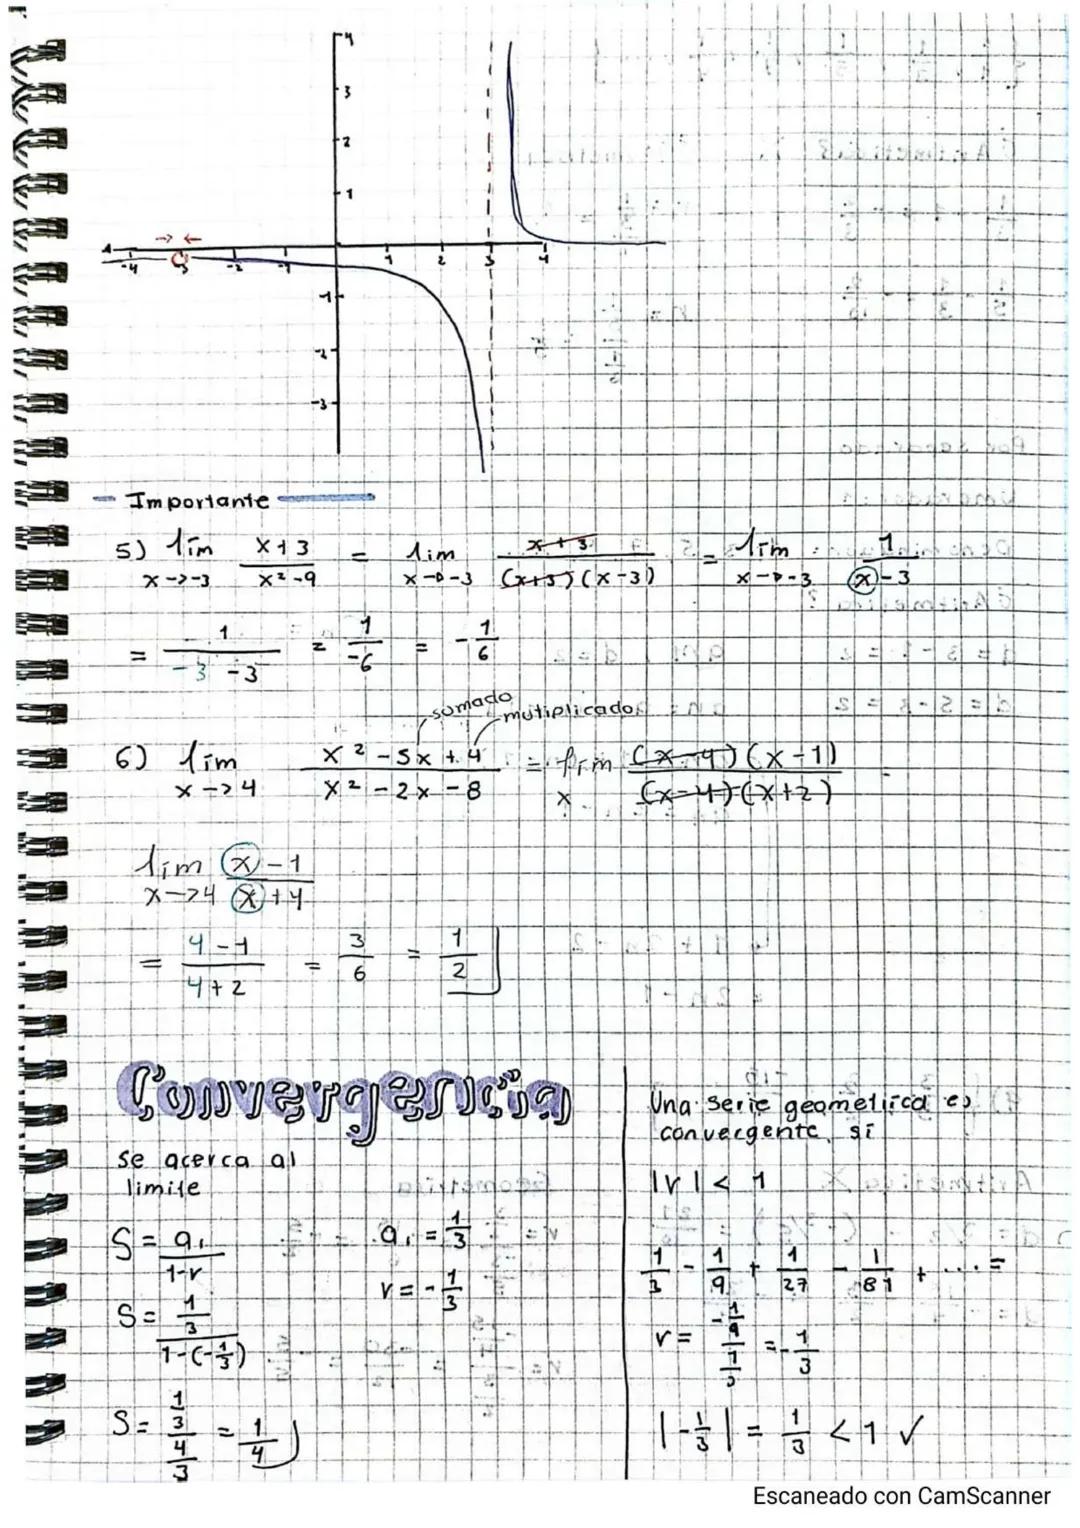 4
3
2
1
-4 -3 -2 -1 1 2 3 4
-1
-2
-3
Importante
5) lím x→-3 x+3 / x²-9 = lim x→-3 x+3 / (x+3)(x-3) = lím x→-3 1 / x-3
= 1 / -3-3 = 1 / -6 = -1/6
sumado
mutiplicado
6) lím x→4 x²-5x+4 / x²-2x-8 = lím x (x-4)(x-1) / (x-4)(x+2)
lím x→4 x-1 / x+4
= 4-1 / 4+2 = 3/6 = 1/2
Convergencia
se acerca al
limite
S = a₁ / 1-r a₁ = 1/3
r = -1/3
S = 1/3 / 1-(-1/3)
S = 1/3 / 4/3 = 1/4
Una serie geometrica es
convergente si
|r| < 1
1/3 - 1/9 + 1/27 - 1/81 + .... =
r = -1/9 / 1/3 = -1/3
|-1/3| = 1/3 < 1 ✓
Escaneado con CamScanner